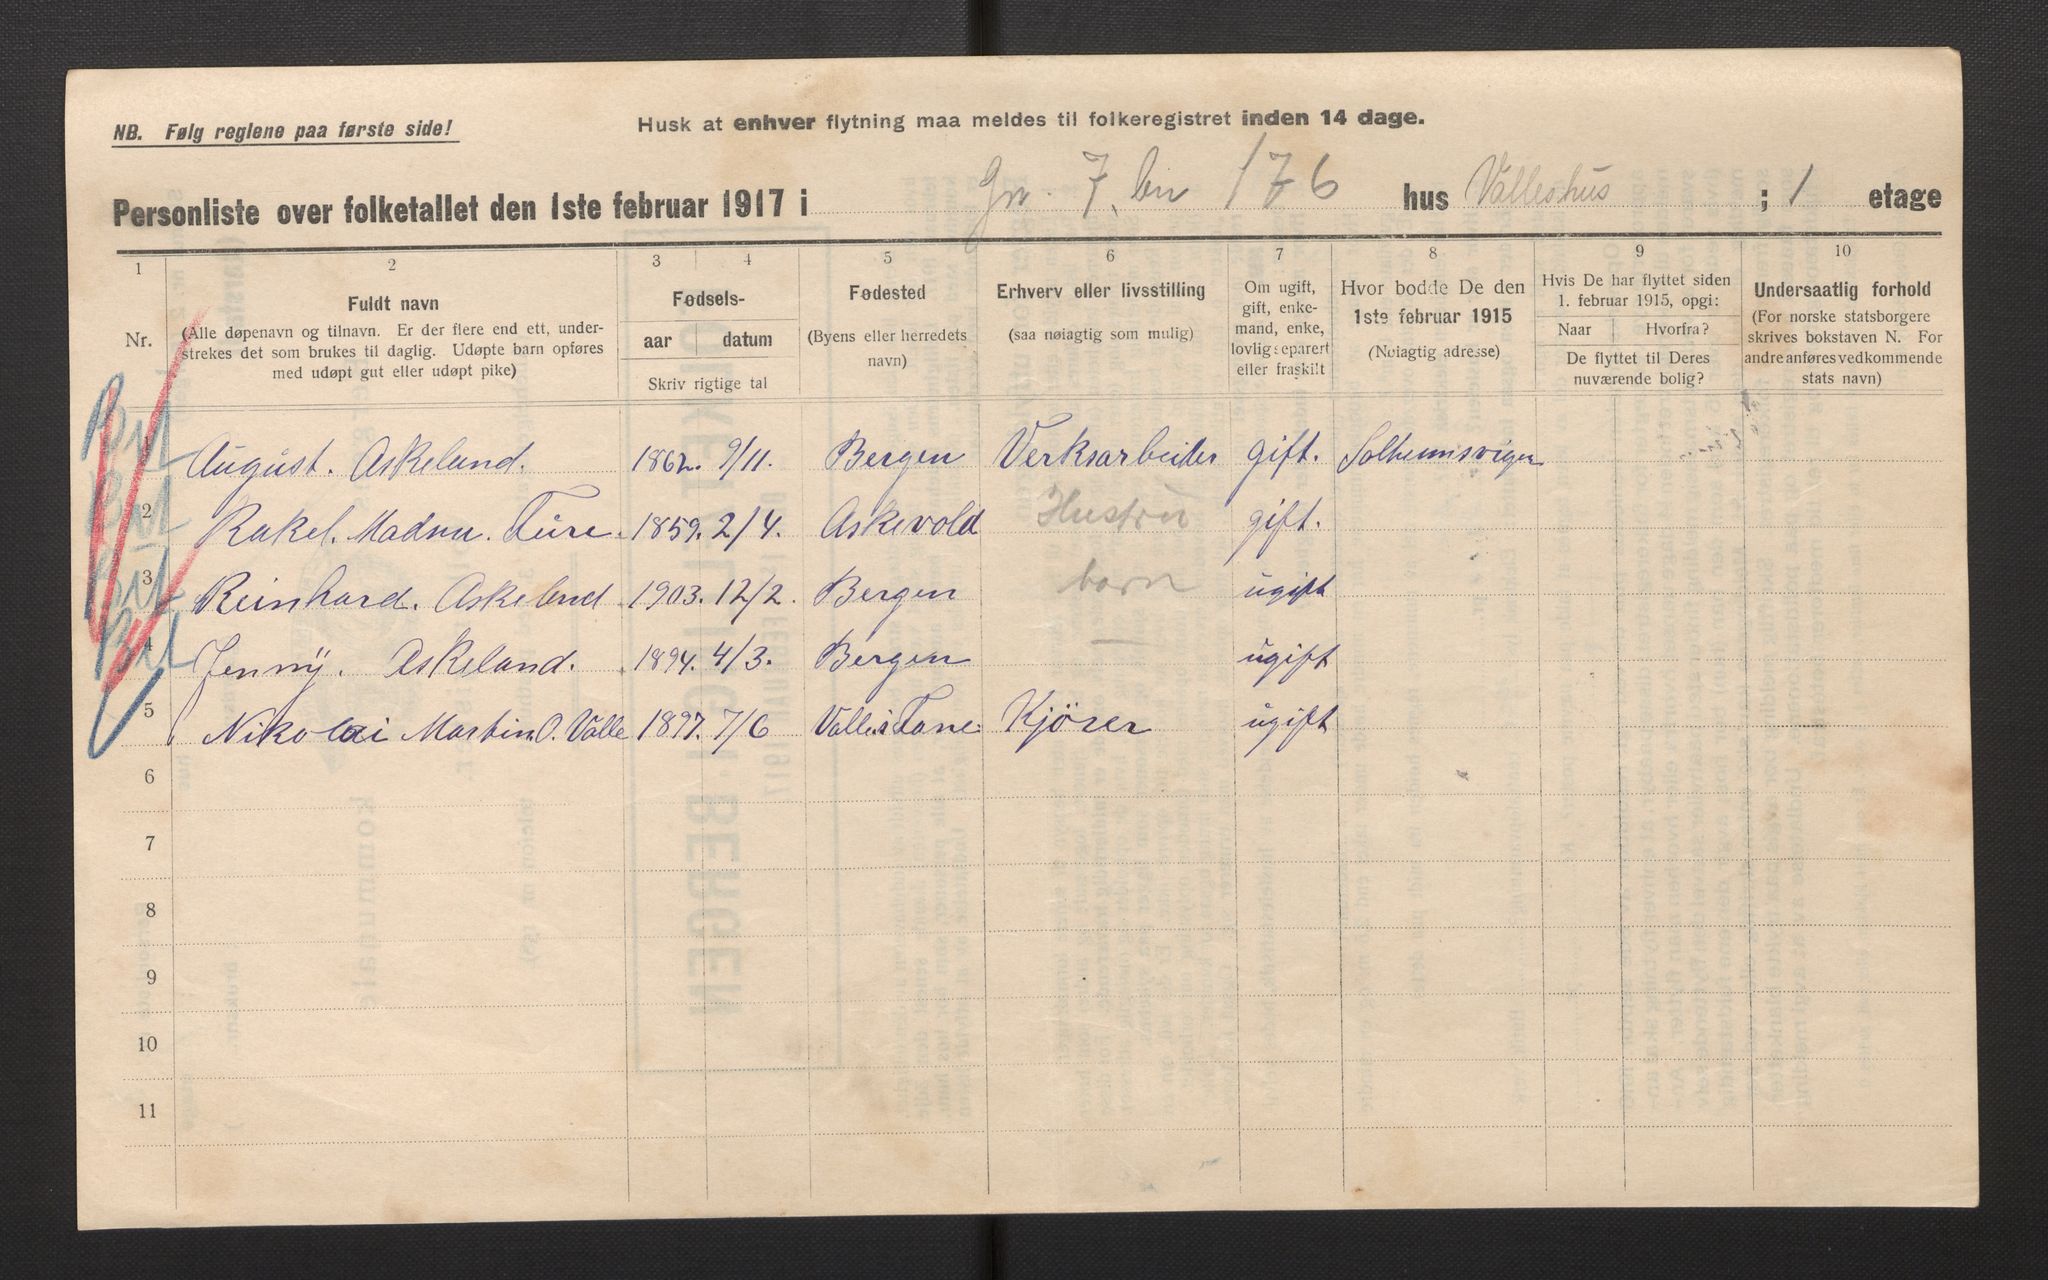 NB. Følg reglene paa første side!
Husk at enhver flytning maa meldes til folkeregistret inden 14 dage.
Personliste over folketallet den 1ste februar 1917 i Gn. 7, bn 176 hus Valleshus ; 1 etage
1 2 3 4 5 6 7 8 9 10
Nr.
Fuldt navn
(Alle døpenavn og tilnavn. Er der flere end ett, under-
strekes det som brukes til daglig. Udøpte barn opføres
med udøpt gut eller udøpt pike)
Fødsels-
aar datum
Skriv rigtige tal
Fødested
(Byens eller herredets
navn)
Erhverv eller livsstilling
(saa nøiagtig som mulig)
Om ugift,
gift, enke-
mand, enke,
lovlig separert
eller fraskilt
Hvor bodde De den
1ste februar 1915
(Nøiagtig adresse)
Hvis De har flyttet siden
1. februar 1915, opgi:
Naar Hvorfra?
De flyttet til Deres
nuværende bolig?
Undersaatlig forhold
(For norske statsborgere
skrives bokstaven N. For
andre anføres vedkommende
stats navn)
1 August. Askeland. 1862. 9/11. Bergen Verksarbeider gift. Solheimsvigen
2 Rakel. Madnu. Ture. 1859. 2/4. Askevold Hustru gift.
3 Reinhard. Askelend 1903. 12/2. Bergen barn ugift
4 Jenny. Askeland. 1894. 4/3. Bergen — ugift
5 Nikolai Martin. O. Valle 1897. 7/6 Valle i Fane. Kjörer ugift
6
7
8
9
10
11